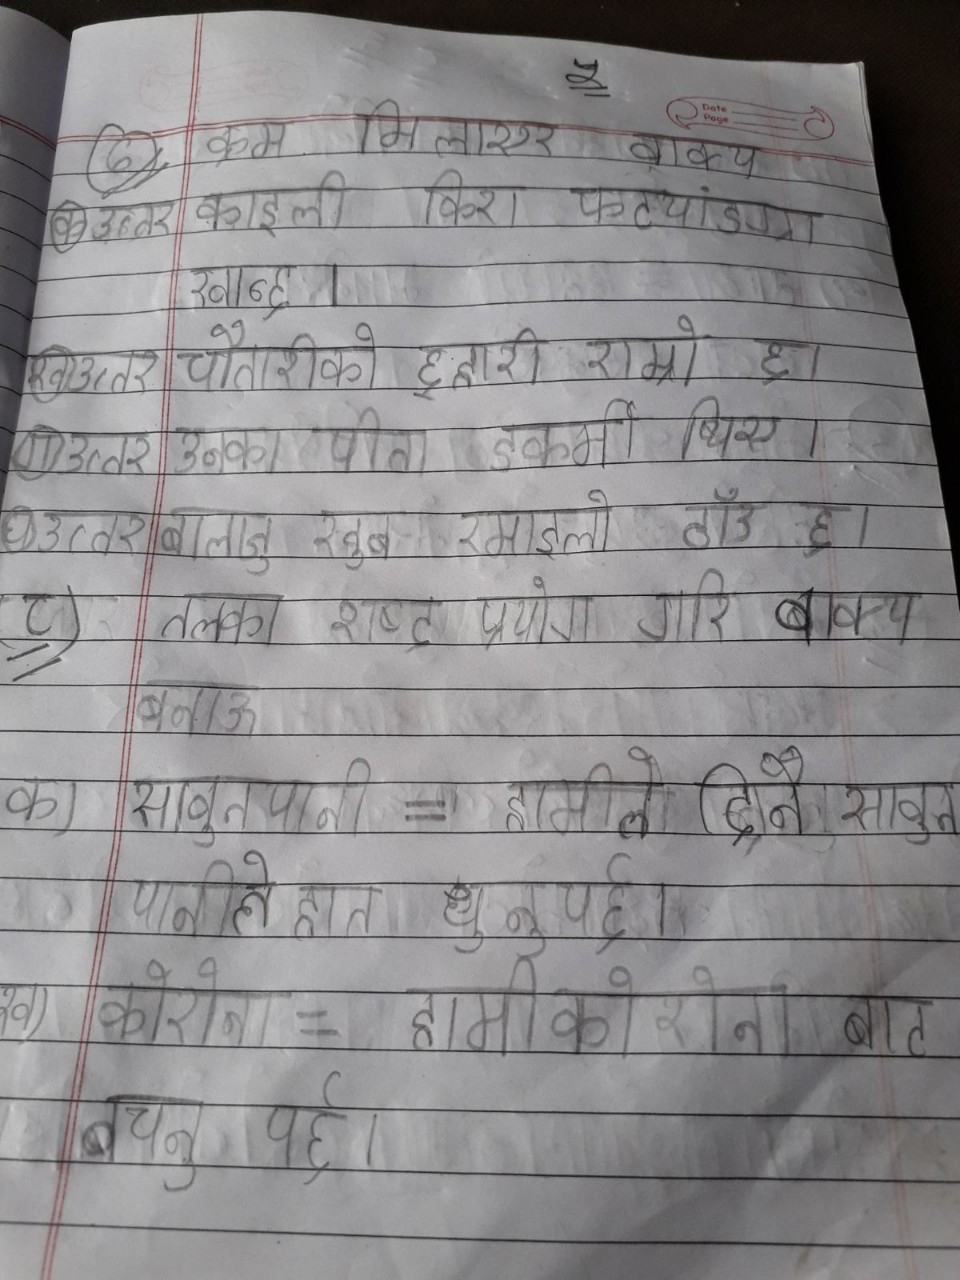 Date
Page
क्रम मिलाएर वाक्य
क उत्तर काइली किरा फट्यांङग्रा
खान्छ ।
ख उत्तर चौतारीको छहारी राम्रो छ ।
ग उत्तर उनका पीता डकर्मी थिए ।
घ उत्तर बालाजु खुब रमाइलो ठाँउ छ ।
८) तलका शब्द प्रयोग गरि बाक्य
बनाऊ
क) साबुनपानी = हामीले दिनै साबुन
पानीले हात धुनुपर्छ ।
ख) कोरोना = हामी कोरोना बाट
बचनु पर्छ ।